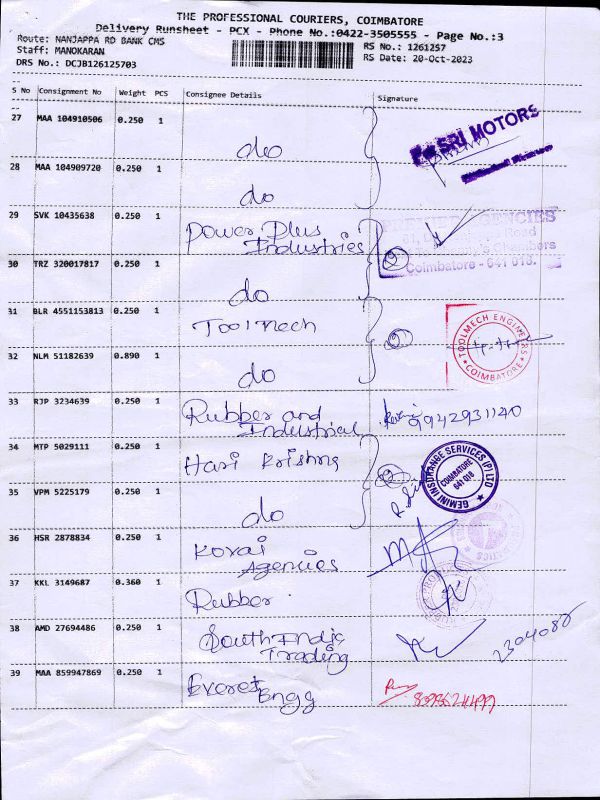 THE PROFESSIONAL COURIERS, COIMBATORE
Delivery Runsheet - PCX - Phone No.:0422-3505555 - Page No.:3
Route: NANJAPPA RD BANK CMS
RS No.: 1261257
Staff: MANOKARAN
RS Date: 20-Oct-2023
DRS No.: DCJB126125703
S No Consignment No Weight PCS Consignee Details Signature
27 MAA 104910506 0.250 1 do
SRI MOTORS
28 MAA 104909720 0.250 1 do
29 SVK 10435638 0.250 1 Power Plus
Industries
AGENCIES
Road
Chambers
Coimbatore - 641 018.
30 TRZ 320017817 0.250 1 do
31 BLR 4551153813 0.250 1 Toolmech
TOOLMECH ENGINEERS
COIMBATORE
32 NLM 51182639 0.890 1 do
33 RJP 3234639 0.250 1 Rubber and
Industrial
9942931140
34 MTP 5029111 0.250 1 Hari Krishna
GEMINI INSURANCE SERVICES (P) LTD
COIMBATORE
641 018
35 VPM 5225179 0.250 1 do
36 HSR 2878834 0.250 1 Kovai
Agencies
37 KKL 3149687 0.360 1 Rubber
38 AMD 27694486 0.250 1 South India
Trading
2304080
39 MAA 859947869 0.250 1 Everest
Engg